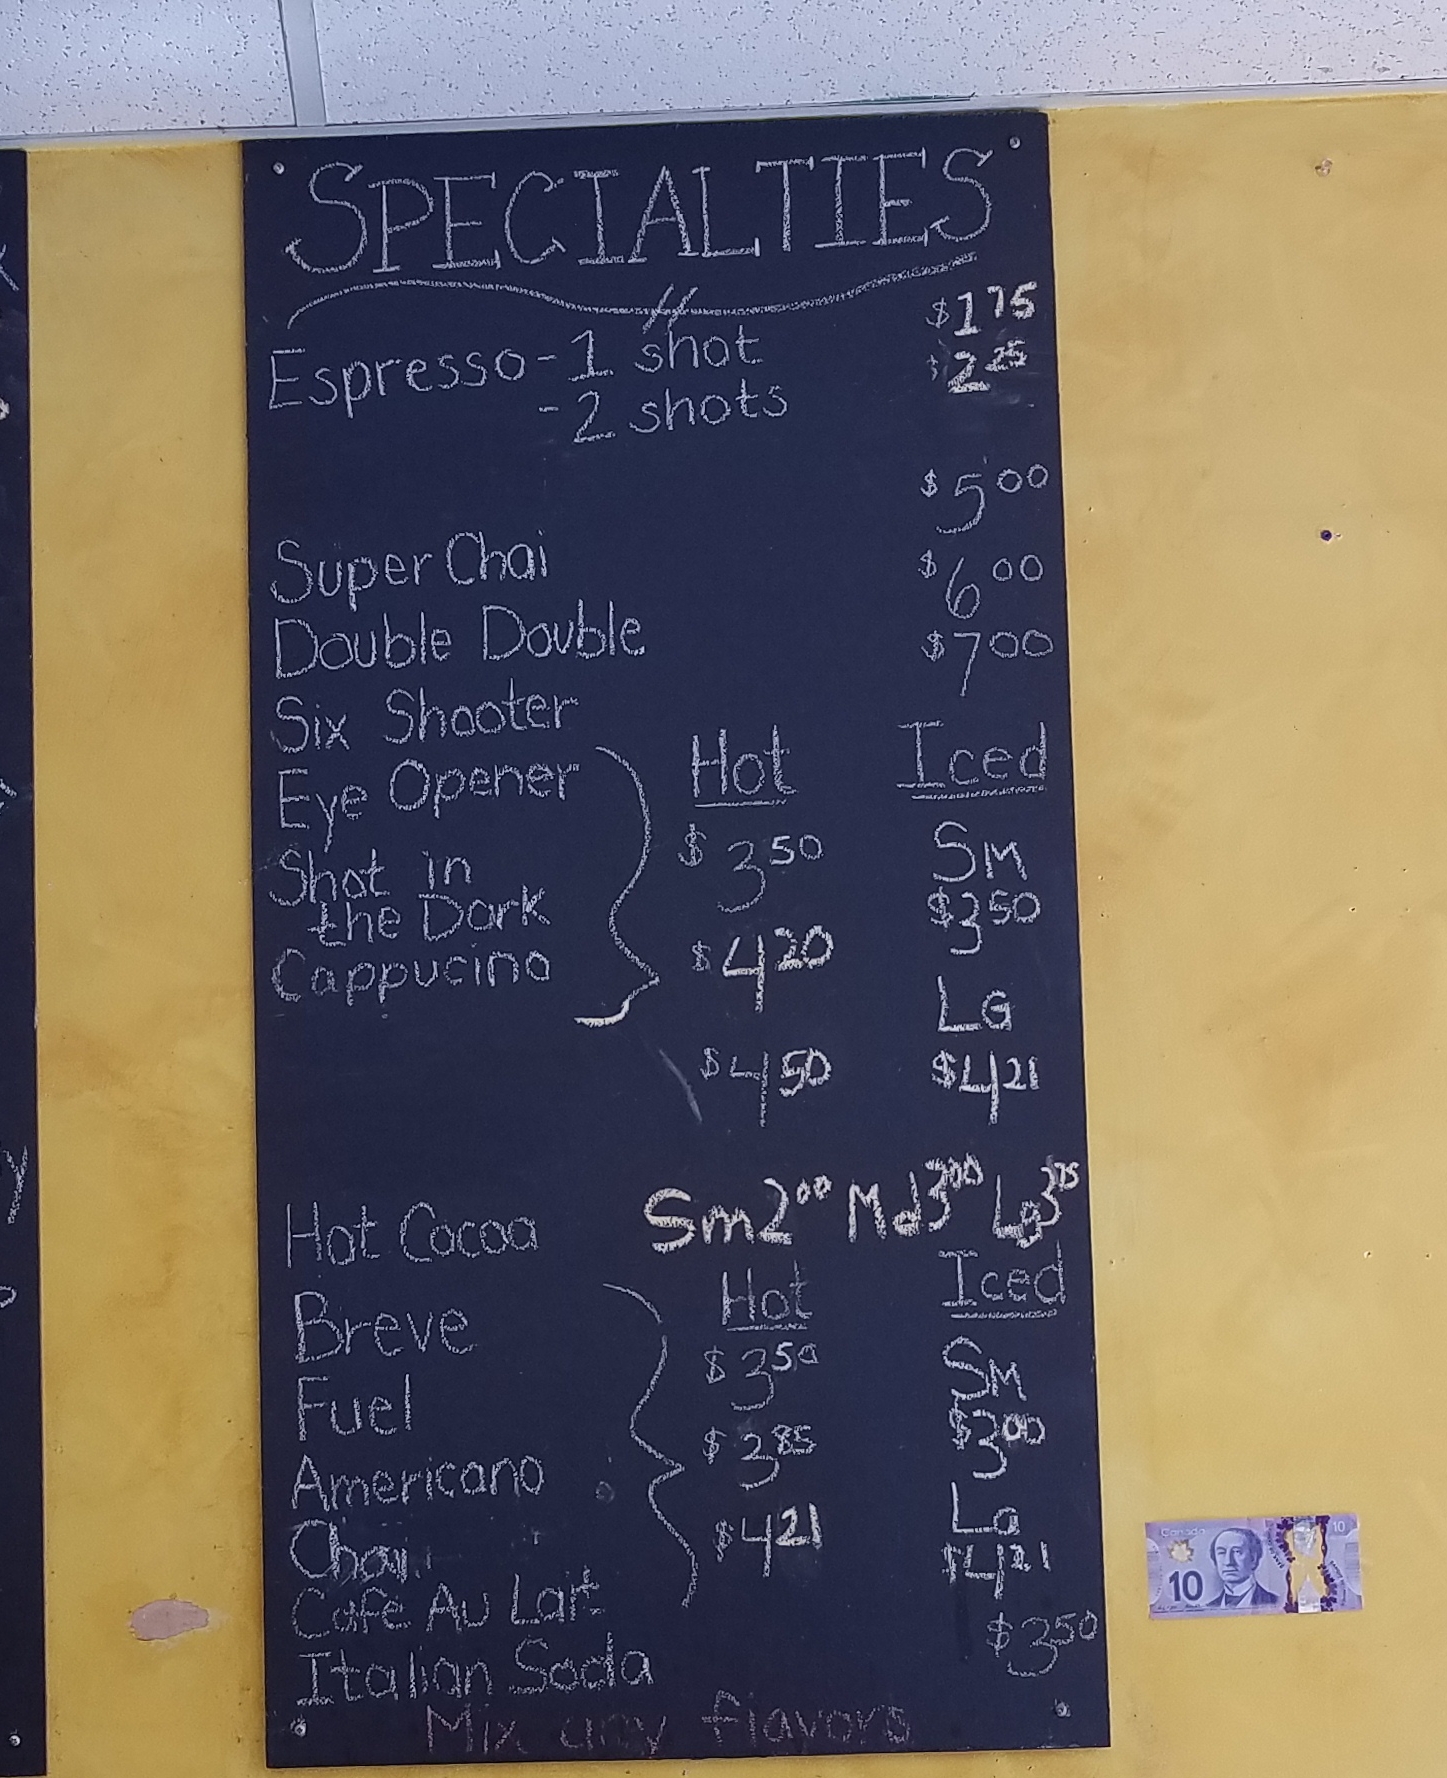 SPECIALTIES
Espresso - 1 shot $1 75
- 2 shots $2 25
Super Chai $5 00
Double Double $6 00
Six Shooter $7 00
Eye Opener
Shot in
the Dark
Cappucino
Hot Iced
$3 50 Sm
$3 50
$4 20 LG
$4 50 $4 21
Hot Cocoa Sm 2 00 Md 3 00 Lg 3 75
Breve
Fuel
Americano
Chai
Café Au Lait
Hot Iced
$3 50 Sm
$3 85 $3 00
Lg
$4 21 $4 21
Italian Soda $3 50
Mix any flavors
Canada
10
10